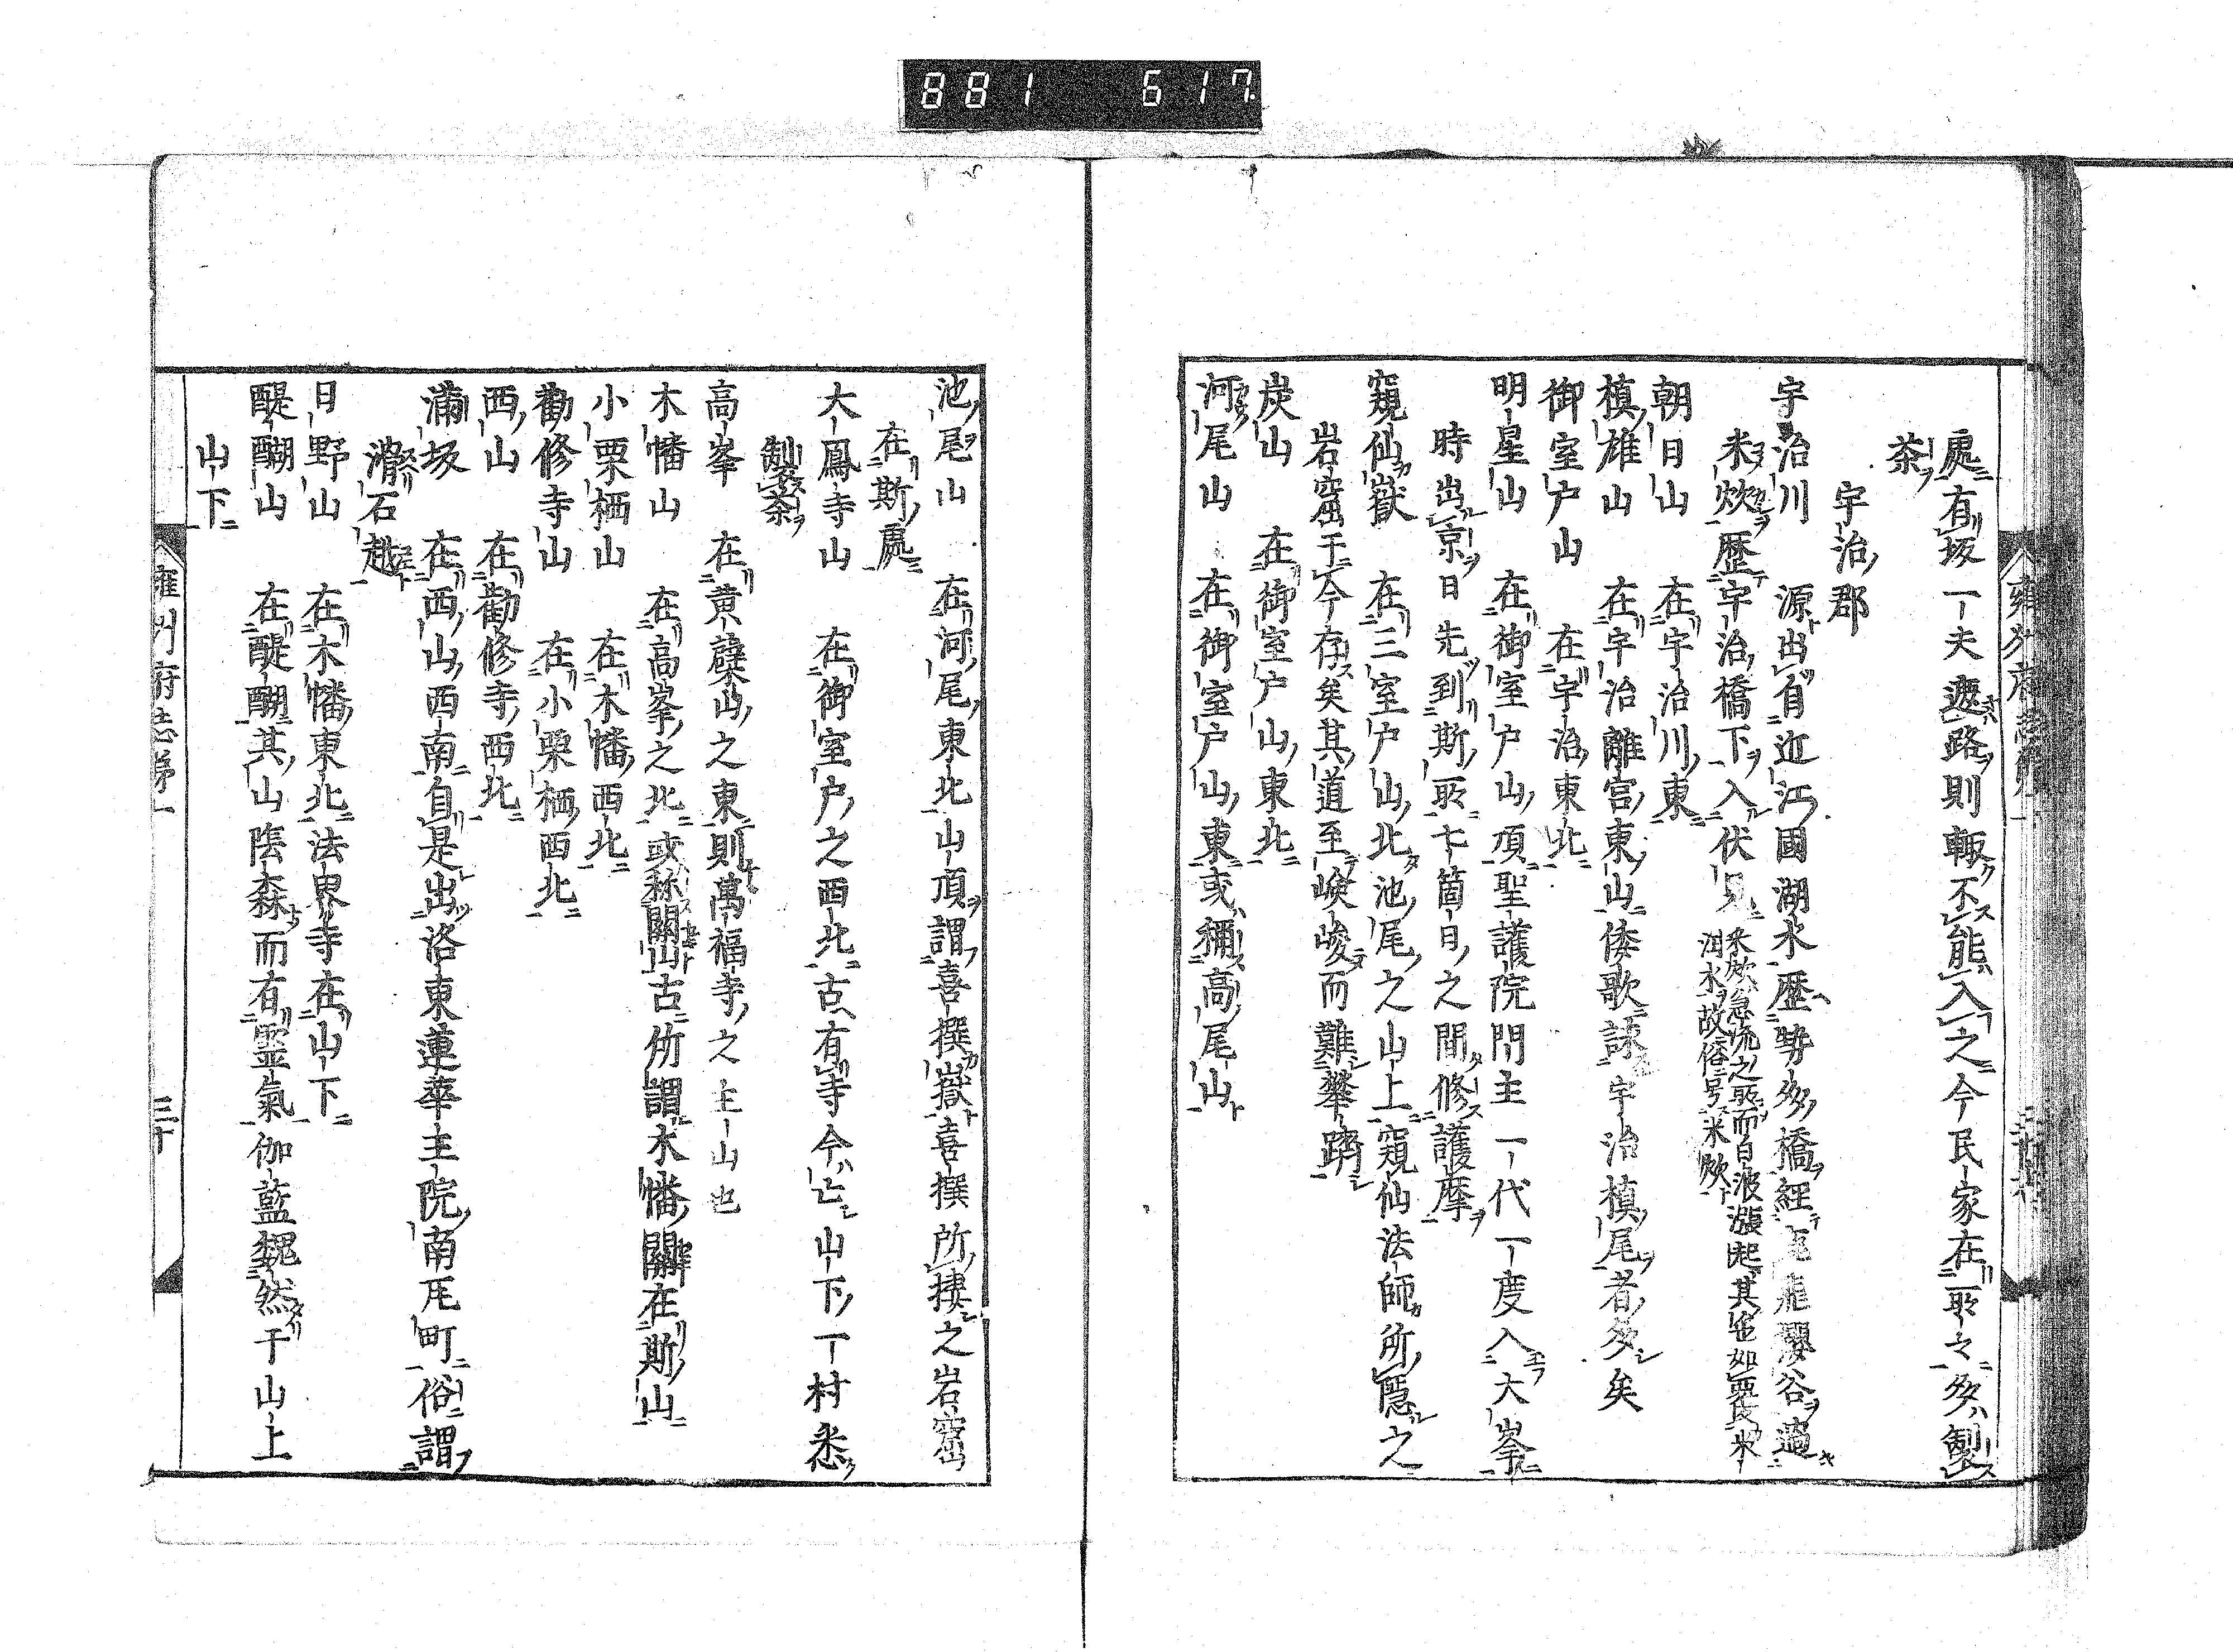 881 617
處有坂一夫遮路則輙不能入之今民家在所々多製
茶
宇治郡
宇治川 源出自近江國湖水歷勢多橋經鹿飛櫻谷過
米炊歷宇治橋下入伏見 米炊急流之所而白波漲起其色如
洄水故俗号米炊
朝日山 在宇治川東
槙雄山 在宇治離宮東山倭歌詠宇治槙尾者多矣
御室户山 在宇治東北
明星山 在御室户山頂聖護院門主一代一度入大峯
時出京日先到斯所七箇日之間修護摩
窺仙嶽 在三室户山北池尾之山上窺仙法師所隱之
岩窟于今存矣其道至嶮峻而難攀躋
炭山 在御室户山東北
河尾山 在御室户山東或稱高尾山
池尾山 在河尾東北山頂謂喜撰嶽喜撰所捿之岩窟
在斯處
大鳳寺山 在御室户之西北古有寺今亡山下一村悉
製茶
高峯 在黄蘗山之東則萬福寺之主山也
木幡山 在高峯之北或称關山古所謂木幡關在斯山
小栗栖山 在木幡西北
勸修寺山 在小栗栖西北
西山 在勸修寺西北
滿坂 在西山西南自是出洛東蓮華王院南瓦町俗謂
滑石越
日野山 在木幡東北法界寺在山下
醍醐山 在醍醐其山陰森而有靈氣伽藍巍然于山上
山下
雍州府志第一 三十